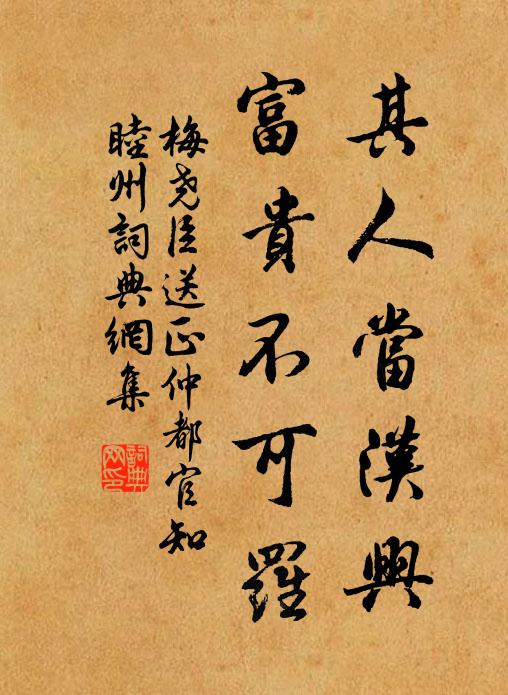 其人當漢興
富貴不可羅
梅堯臣送正仲都官知
睦州詞典網集
詞典网印